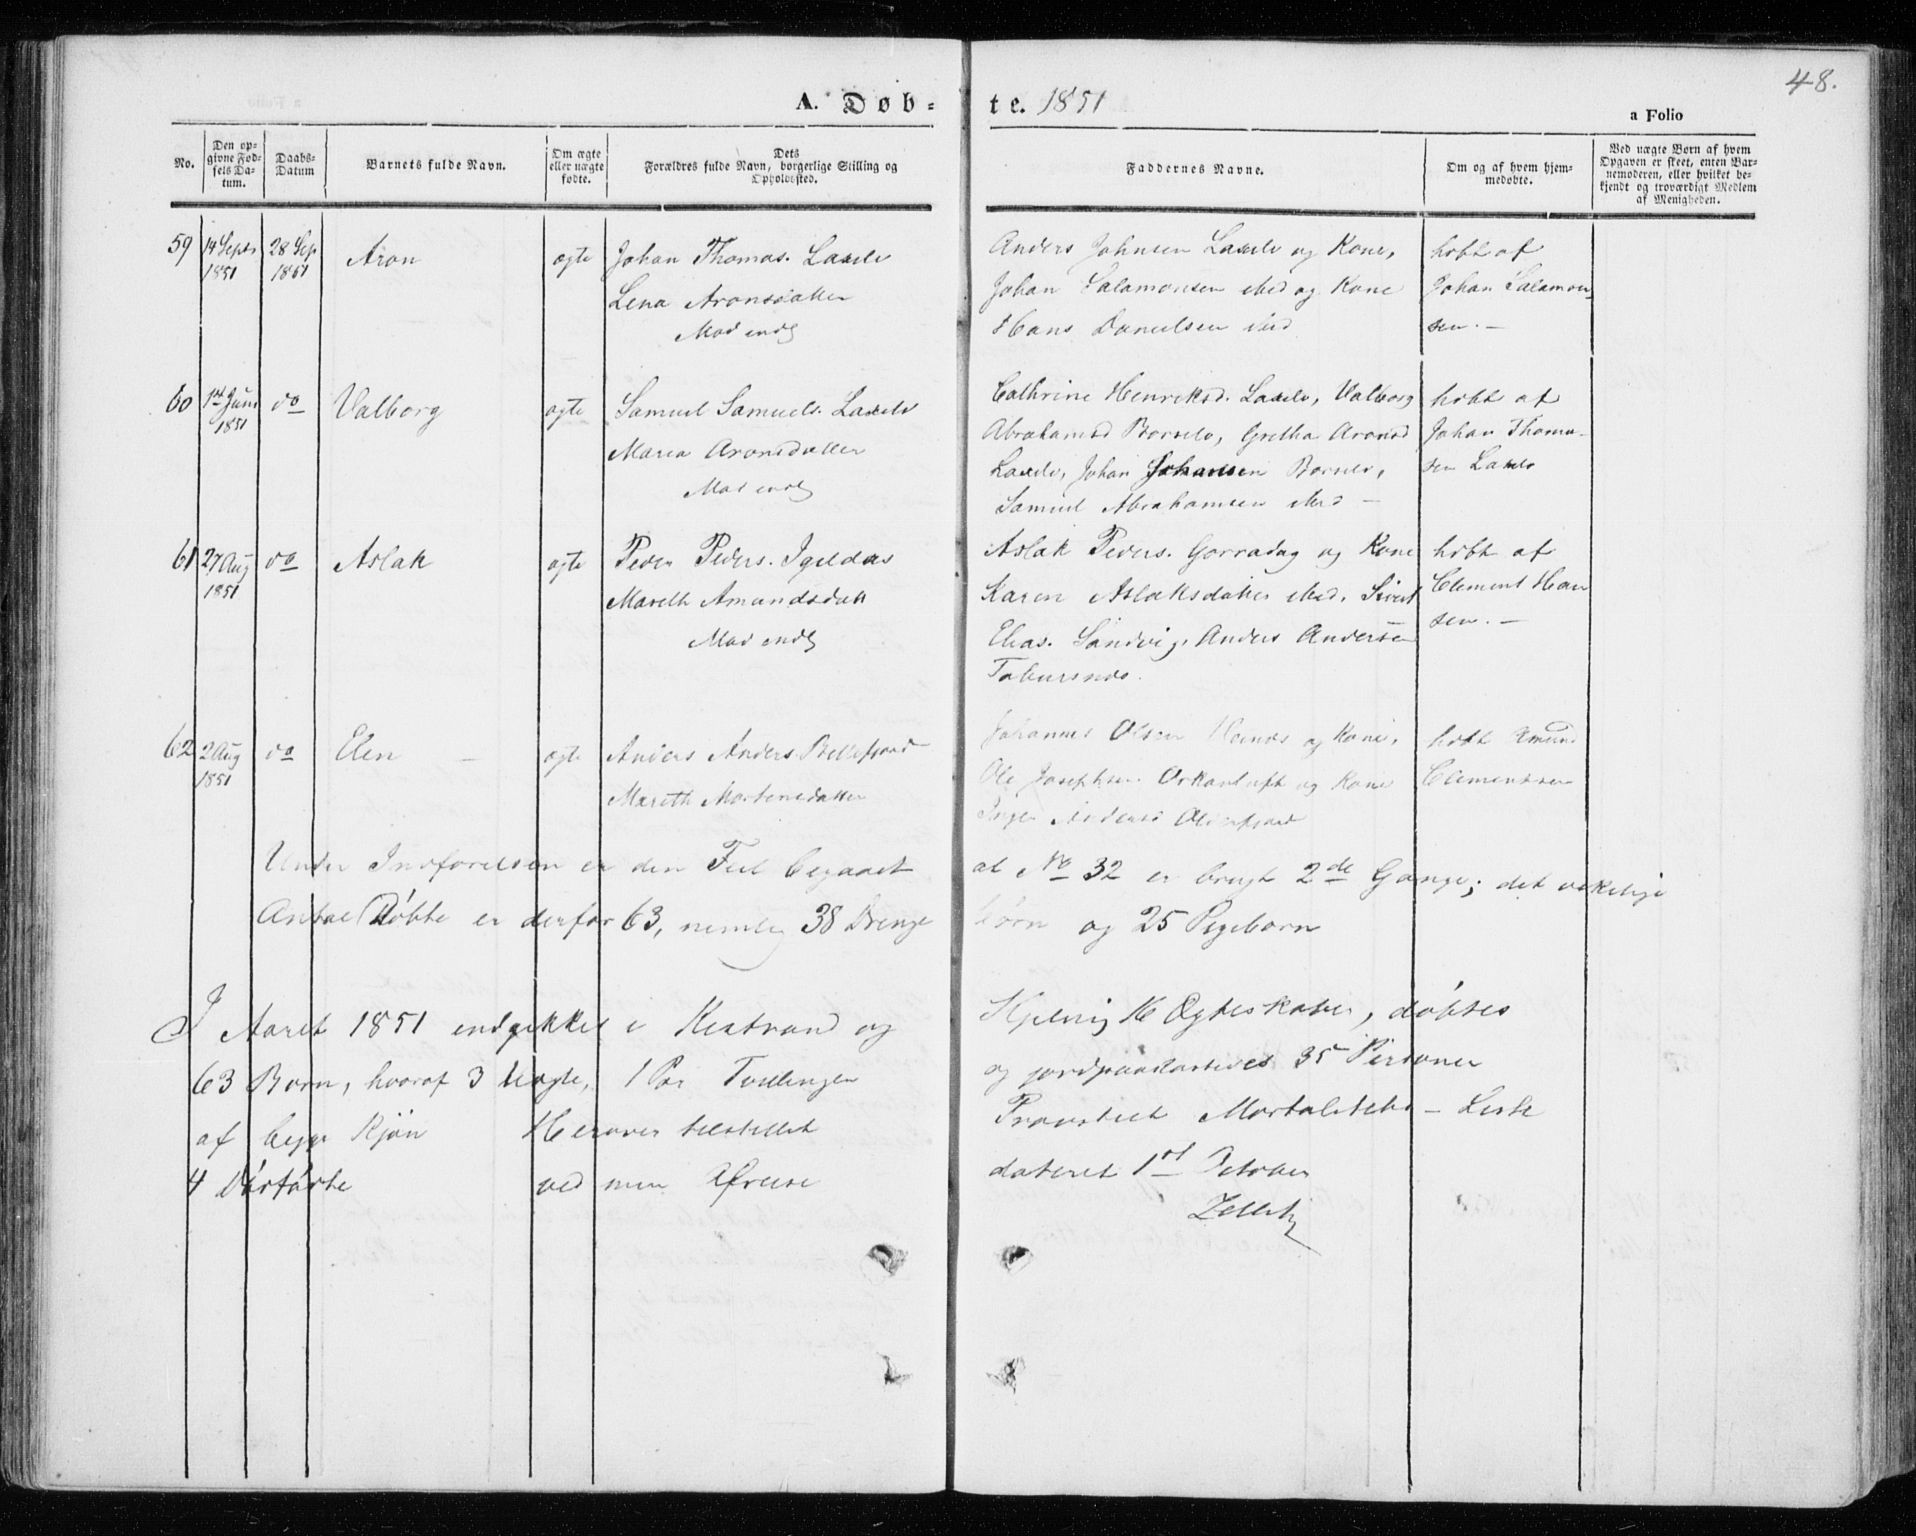 48.
A. Døb-te. 1851
a Folio
No.
Den opgivne Fødsels Datum.
Daabs-Datum
Barnets fulde Navn.
Om ægte eller uægte fødte.
Dets Forældres fulde Navn, borgerlige Stilling og Opholdssted.
Faddernes Navne.
Om og af hvem hjemmedøbte.
Ved uægte Børn af hvem Opgaven er skeet, enten Barnemoderen, eller hvilket bekjendt og troværdigt Medlem af Menigheden.
59 14 Septr 1851 28 Sep 1851 Aron ægte
Johan Thomas. Laxelv
Lena Aronsdatter
Anders Johnsen Laxelv og Kone,
Johan Salamonsen ibid og Kone
Hans Danielsen ibid
hdbt af
Johan Salamon-
sen. —
60 14 Juni 1851 do Valborg ægte
Samuel Samuels. Laxelv
Maria Aronsdatter
Cathrine Henriksd. Laxelv, Valborg
Abrahamsd Borselv, Gretha Aronsd
Laxelv, Johan Johansen Borselv,
Samuel Abrahamsen ibid —
hdbt af
Johan Thoma-
sen Laxelv
61 27 Aug 1851 do Aslak ægte
Peder Peders. Igeldas
Mareth Amundsdatt
Aslak Peders. Gorradag og Kone
Karen Aslaksdatter ibid. Sivert
Elias. Sandvig, Anders Andersen
hdbt af
Clement Han
sen. —
62 2 Aug 1851 do Elen — ægte
Anders Anders. Billefjord
Mareth Mortensdatter
Johannes Olsen og Kone,
Ole Josephsen og Kone
Inger Andersd Olderfjord
hdbt Amund
Clementsen
Under Indførelsen er den Feil begaaet at No 32 er brugt 2de Gange; det virkelige
Antal Døbte er derfor 63, nemlig 38 Drenge børn og 25 Pigebørn
I Aaret 1851 indgikkes i Kistrand og
63 Børn, hvoraf 3 Uægte, 1 Par Tvillinger
af begge Kjøn
4 Dødfødte
Herover tilstillet
ved min Afreise
16 Ægteskaber, døbtes
og jordpaakastedes 35 Personer
Provstiet Mortalitets-Liste
dateret 1st October